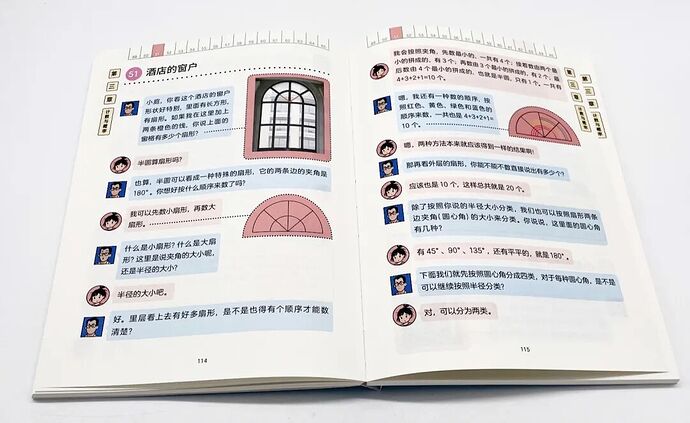 51 酒店的窗户
第三章
计数与概率
小庭，你看这个酒店的窗户
形状好特别，里面有长方形，
有扇形。如果我在这里加上
两条橙色的线，你说上面的
窗格有多少个扇形？
半圆算扇形吗？
也算，半圆可以看成一种特殊的扇形，它的两条边的夹角是
180°。你想好按什么顺序来数了吗？
我可以先数小扇形，再数大
扇形。
什么是小扇形？什么是大扇
形？这里是说夹角的大小呢，
还是半径的大小？
半径的大小吧。
好。里层看上去有好多扇形，是不是也得有个顺序才能数
清楚？
114
我会按照夹角，先数最小的，一共有4个；接着数由两个最
小的拼成的，有3个；再数由3个最小的拼成的，有2个，最
后数由4个最小的拼成的，也就是半圆，只有1个，一共有
4+3+2+1=10个。
嗯，我还有一种数的顺序，按
照红色、黄色、绿色和蓝色的
顺序来数，一共也是4+3+2+1=
10个。
嗯，两种方法本来就应该得到一样的结果啊！
那再看外层的扇形，你能不能不数直接说出有多少个？
应该也是10个，这样总共就是20个。
除了按照你说的半径大小分类，我们也可以按照扇形两条
边夹角（圆心角）的大小来分类。你说说，这里面的圆心角
有几种？
有45°、90°、135°，还有平平的，就是180°。
下面我们就先按照圆心角分成四类，对于每种圆心角，是不是
可以继续按照半径分类？
对，可以分为两类。
第三章
115